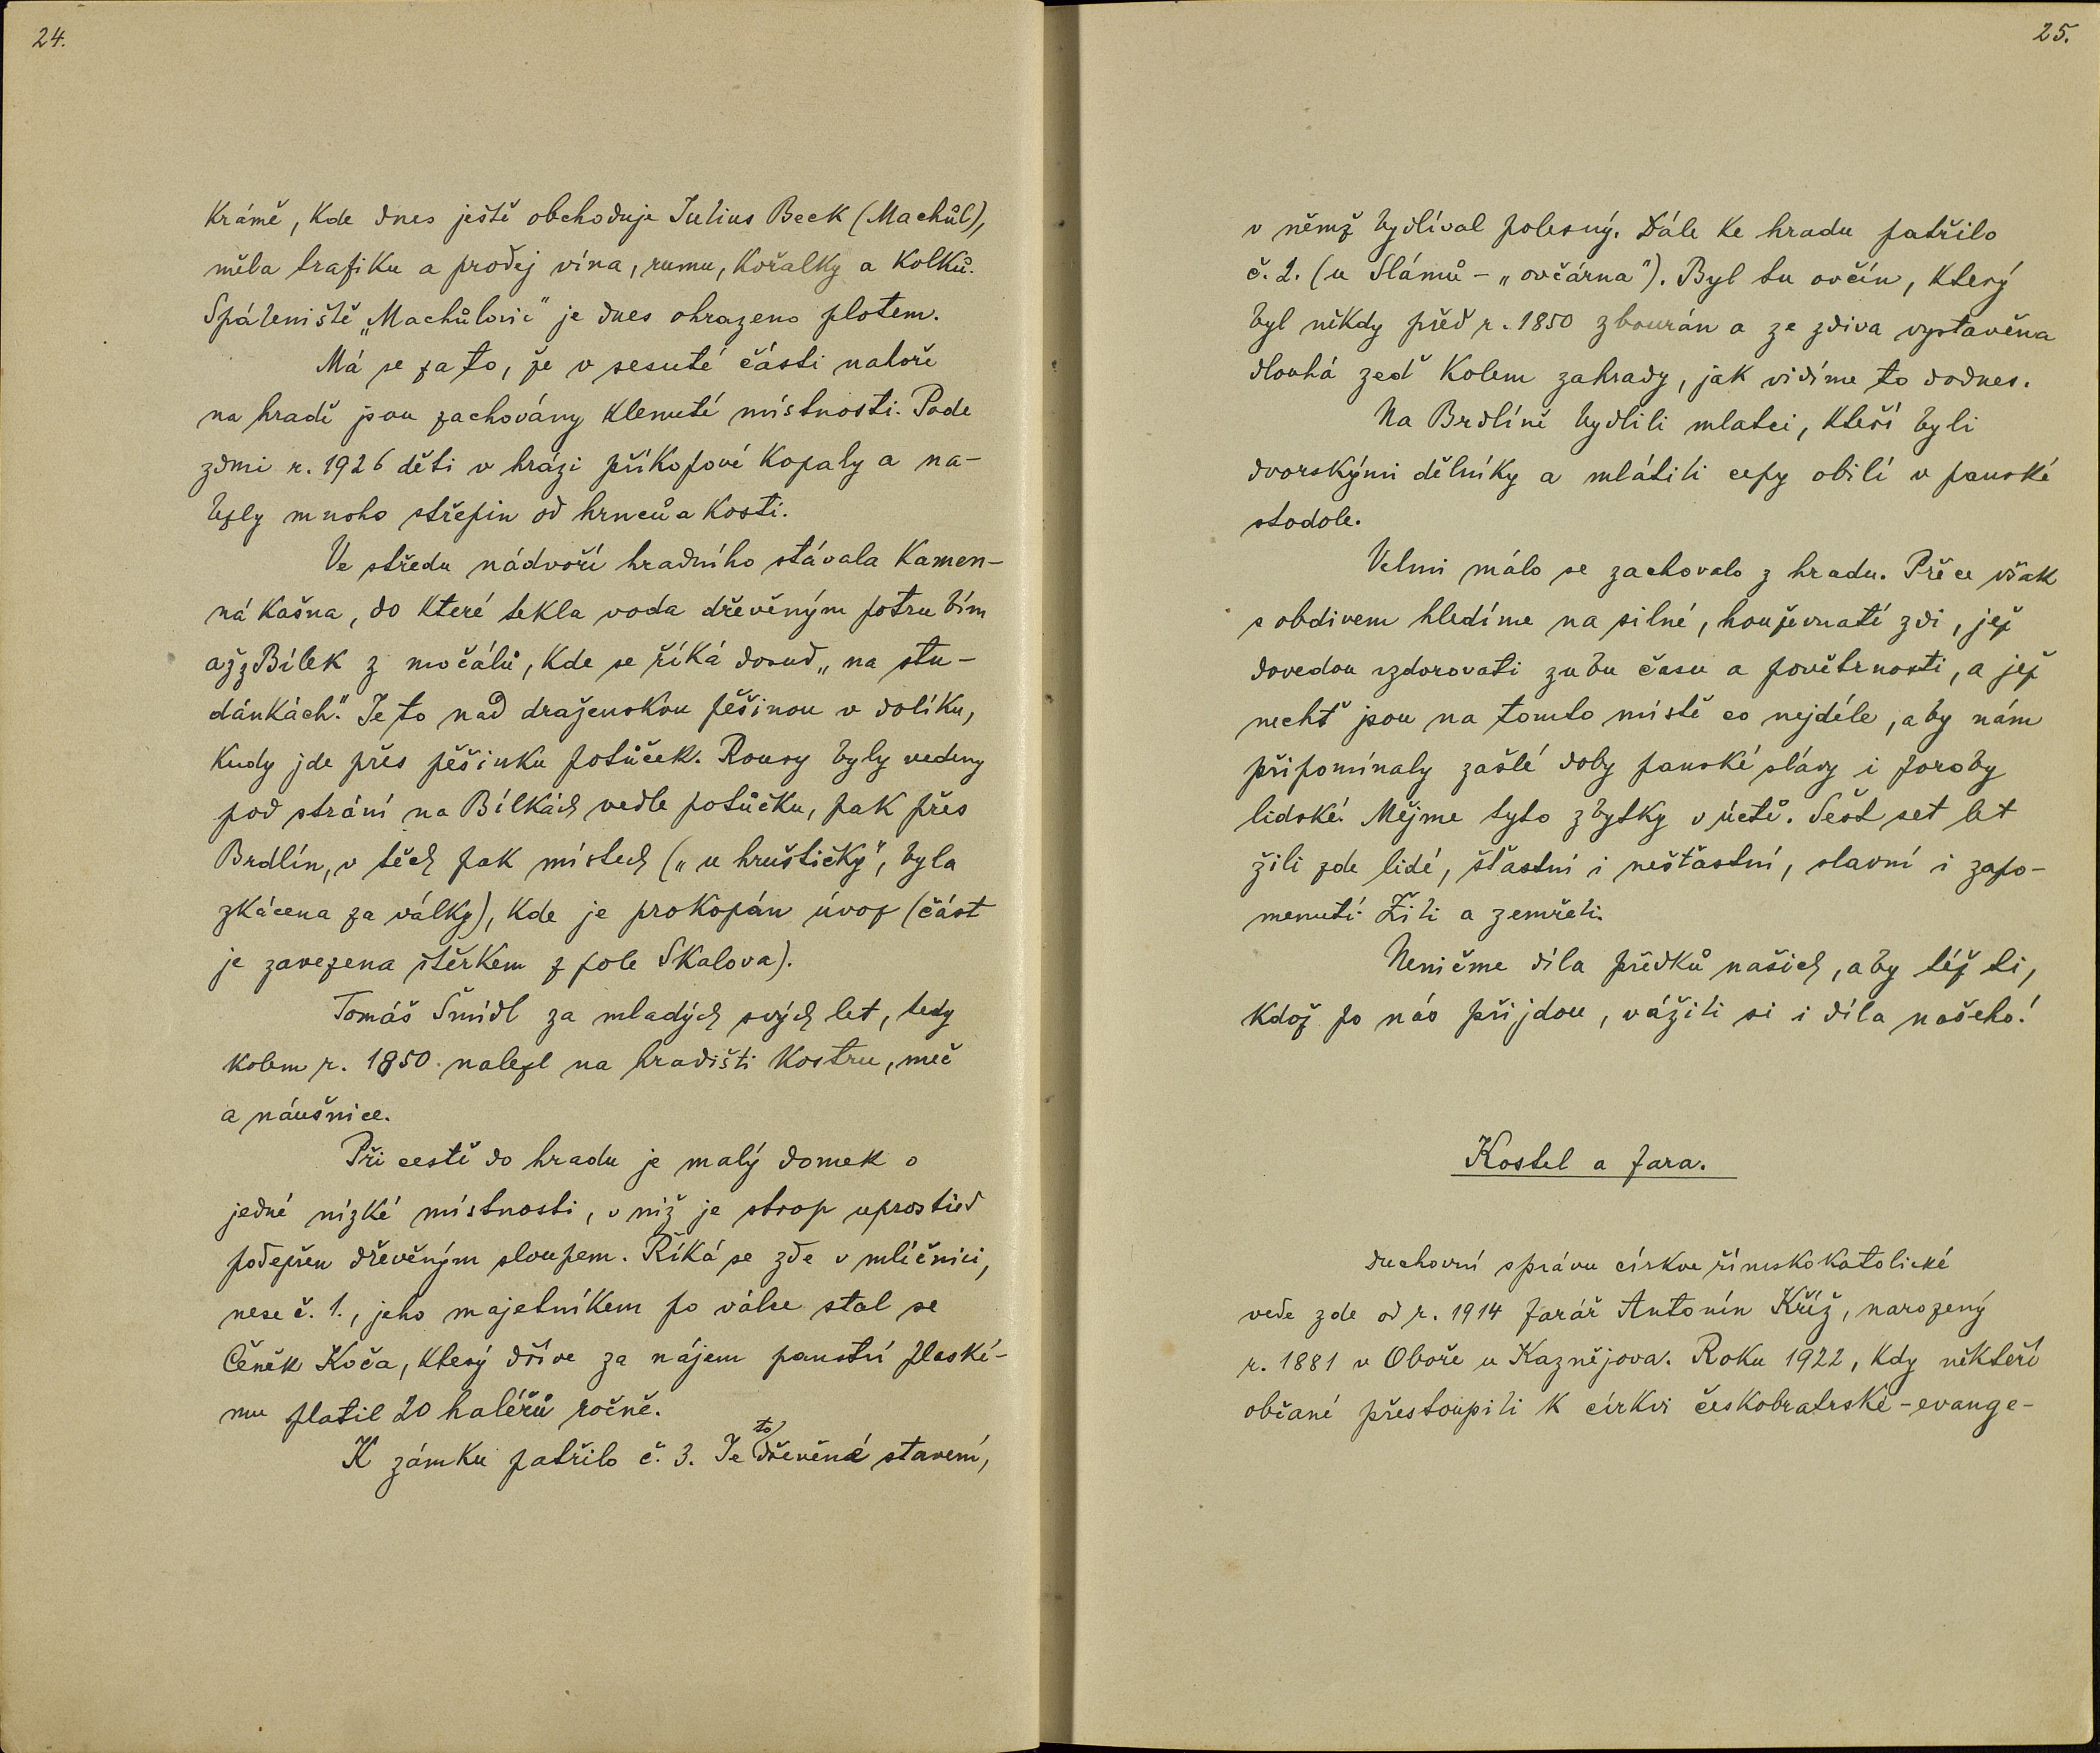 24.
Krámě, kde dnes ještě obchoduje Julius Beck (Machůl),
měla trafiku a prodej vína, rumu, kořalky a kolků.
Spáleniště „Machůlovic" je dnes ohrazeno plotem.
Má se za to, že v sesuté části nahoře
na hradě jsou zachovány klenuté místnosti. Pode
zdmi r. 1926 děti v hrázi příkopové kopaly a na-
lezly mnoho střepin od hrnců a kostí.
Ve středu nádvoří hradního stávala kamen-
ná kašna, do které tekla voda dřevěným potrubím
až z Bílek z močálů, kde se říká dosud „na stu-
dánkách". Je to nad draženskou pěšinou v dolíku,
kudy jde přes pěšinku potůček. Roury byly vedeny
pod strání na Bílkách vedle potůčku, pak přes
Brdlín, v těch pak místech („u hruštičky", byla
zkácena za války), kde je prokopán úvoz (část
je zavezena štěrkem z pole Skalova).
Tomáš Šmídl za mladých svých let, tedy
kolem r. 1850 nalezl na hradišti kostru, meč
a náušnice.
Při cestě do hradu je malý domek o
jedné nízké místnosti, v níž je strop uprostřed
podepřen dřevěným sloupem. Říká se zde v mlíčnici,
nese č. 1., jeho majetníkem po válce stal se
Čeněk Koča, který dříve za nájem panství plaské-
mu platil 20 haléřů ročně.
K zámku patřilo č. 3. Je to dřevěné stavení,
25.
v němž bydlíval polesný. Dále ke hradu patřilo
č. 2. (u Slámů - „ovčárna"). Byl tu ovčín, který
byl někdy před r. 1850 zbourán a ze zdiva vystavěna
dlouhá zeď kolem zahrady, jak vidíme to dodnes.
Na Brdlíně bydlili mlatci, kteří byli
dvorskými dělníky a mlátili cepy obilí v panské
stodole.
Velmi málo se zachovalo z hradu. Přece však
s obdivem hledíme na silné, houževnaté zdi, jež
dovedou vzdorovati zubu času a povětrnosti, a jež
nechť jsou na tomto místě co nejdéle, aby nám
připomínaly zašlé doby panské slávy i poroby
lidské. Mějme tyto zbytky v úctě. Šest set let
žili zde lidé, šťastní i nešťastní, slavní i zapo-
menutí. Žili a zemřeli.
Neničme díla předků našich, aby též ti,
kdož po nás přijdou, vážili si i díla našeho!
Kostel a fara.
Duchovní správu církve římskokatolické
vede zde od r. 1914 farář Antonín Kříž, narozený
r. 1881 v Oboře u Kaznějova. Roku 1922, kdy někteří
občané přestoupili k církvi českobratrské-evange-